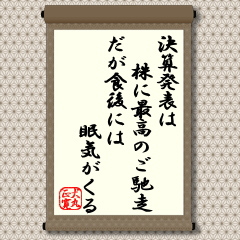 決算発表は
株に最高のご馳走
だが食後には
眠気がくる